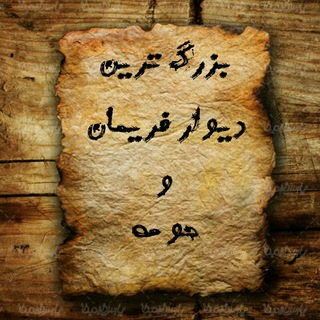 بزرگ ترین
دیوار فریمان
و
حومه